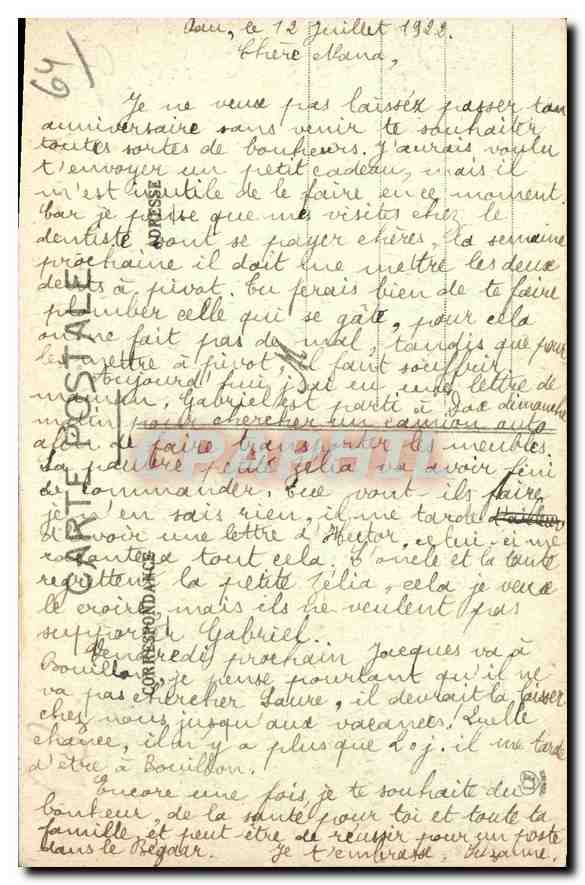 Pau, le 12 Juillet 1922.
Chère Nana,
64
Je ne veux pas laisser passer ton
anniversaire sans venir te souhaiter
toutes sortes de bonheurs. J'aurais voulu
t'envoyer un petit cadeau, mais il
m'est inutile de le faire en ce moment.
Car je pense que mes visites chez le
dentiste vont se payer chères, la semaine
prochaine il doit me mettre les deux
dents à pivot. Tu ferais bien de te faire
plomber celle qui se gâte, pour cela
on ne fait pas de mal, tandis que pour
les mettre à pivot il faut souffrir.
Aujourd'hui j'ai eu une lettre de
maman, Gabriel est parti à Dax dimanche
matin pour chercher un camion auto
afin de faire transporter les meubles.
La pauvre petite Zélia va avoir fini
de commander. Que vont ils faire,
je n'en sais rien, il me tarde
d'avoir une lettre d'Hector, celui-ci me
racontera tout cela. L'oncle et la tante
regrettent la petite Zélia, cela je veux
le croire, mais ils ne veulent pas
supporter Gabriel.
Vendredi prochain Jacques va à
Bouillon, je pense pourtant qu'il ne
va pas chercher Laure, il devrait la laisser
chez nous jusqu'aux vacances. Quelle
chance, il n'y a plus que 20 j. il me tarde
d'être à Bouillon.
Encore une fois, je te souhaite du
bonheur, de la santé pour toi et toute ta
famille, et peut être de réussir pour un poste
dans le Bégaar. Je t'embrasse, Suzanne.
CARTE POSTALE
ADRESSE
CORRESPONDANCE